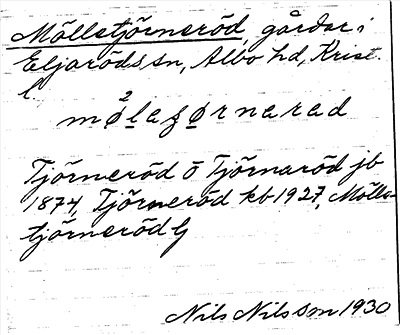 Möllstjörneröd, gårdar i
Eljaröds sn, Albo hd, Krist.
l.
2
mølaʂørnarad
Tjörneröd ö Tjörnaröd jb
1874, Tjörneröd kb 1927, Mölls-
tjörneröd G
Nils Nilsson 1930